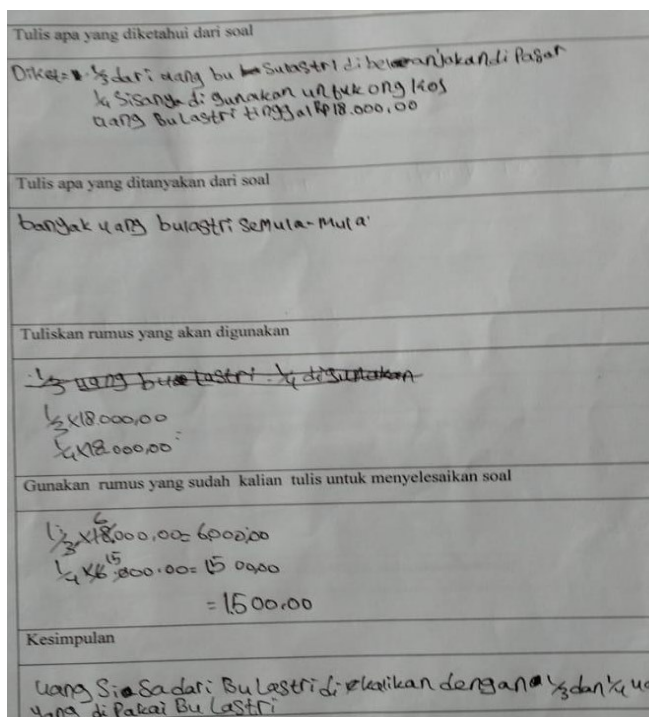 Tulis apa yang diketahui dari soal
Diket= ⅓ dari uang bu Sulastri dibelanjakan di Pasar
¼ Sisanya di gunakan untuk ong kos
uang Bu Lastri tinggal Rp18.000,00
Tulis apa yang ditanyakan dari soal
banyak uang bulastri semula-mula
Tuliskan rumus yang akan digunakan
⅓ uang bu lastri ¼ digunakan
⅓ x18.000,00
¼ x18.000,00
Gunakan rumus yang sudah kalian tulis untuk menyelesaikan soal
⅓ x18.000,00= 6000,00
¼ x6.000.00= 1500,00
= 1.500.00
Kesimpulan
uang Sisa dari Bu Lastri di kalikan dengan ⅓ dan ¼
yang di Pakai Bu Lastri